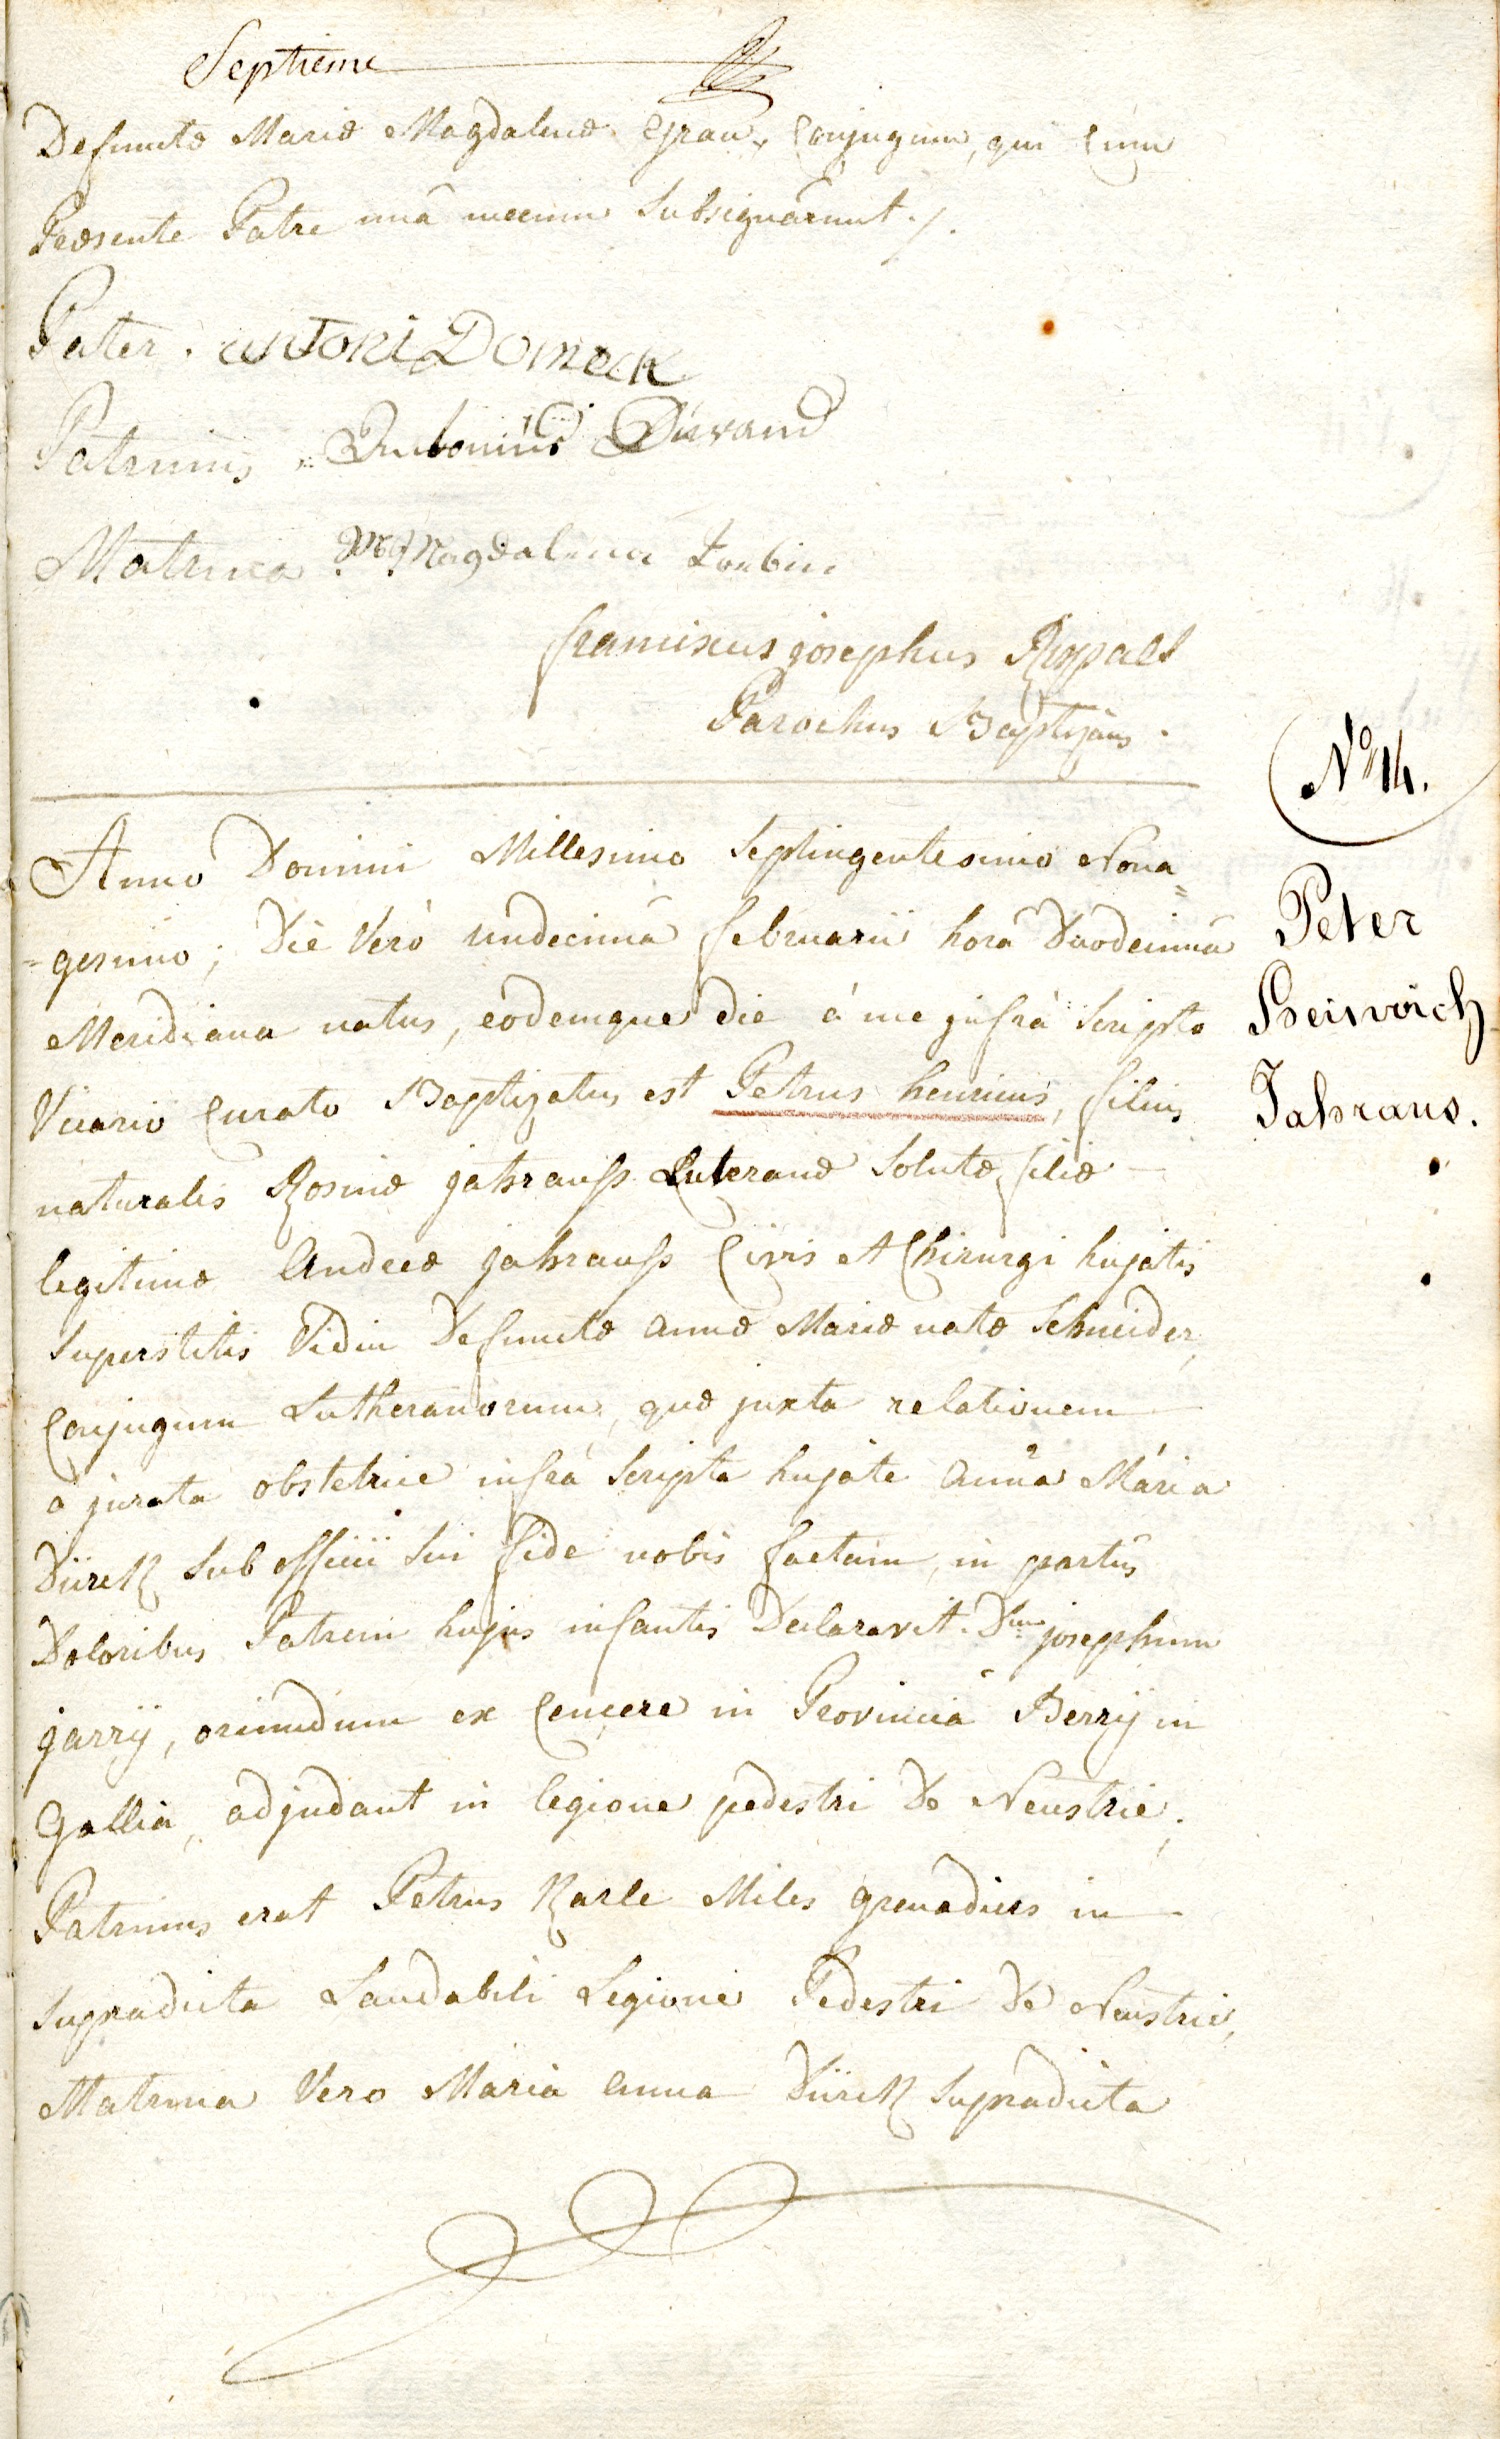 Septieme
Defunctæ Mariæ Magdalenæ Conjugum, qui cum
Præsente Patre unâ mecum Subsignârunt ./.
Pater . antoni Domeck
Patrinus Antonius Durand
Matrina M: Magdalena
franciscus josephus
Parochus Baptizans .
Nº 14.
Anno Domini Millesimo Septingentesimo Nona=
=gesimo; Die Verò undecimâ februarii horâ Duodecimâ
Meridiana natus, eòdemque die á me jnfrà Scripto
Vicario Curato Baptizatus est Petrus henricus, filius
naturalis Rosinæ jahrauss Luteranæ Solutæ, filiæ
legitimæ Andreæ jahrauss Civis et Chirurgi hujatis
Superstitis Vidui Defunctæ annæ Mariæ natæ Schneider,
Conjugum Lutheranorum, quæ juxta relationem
à jurata obstetrice infrà Scripta hujate anna Mária
Dürck Sub officii Sui fide nobis factam, in partûs
Doloribus Patrem hujus infantis Declaravit Dnum josephum
jarrÿ, oriundum ex in Provinciâ Berrÿ in
Gallia, adjudant in legione pedestri de Neustrie;
Patrinus erat Petrus Karle Miles grenadiers in
Supradicta Laudabili Legione Pedestri de Neustrie,
Matrina Vero Maria anna Dürck Supradicta
Peter
Heinrich
Jahraus.